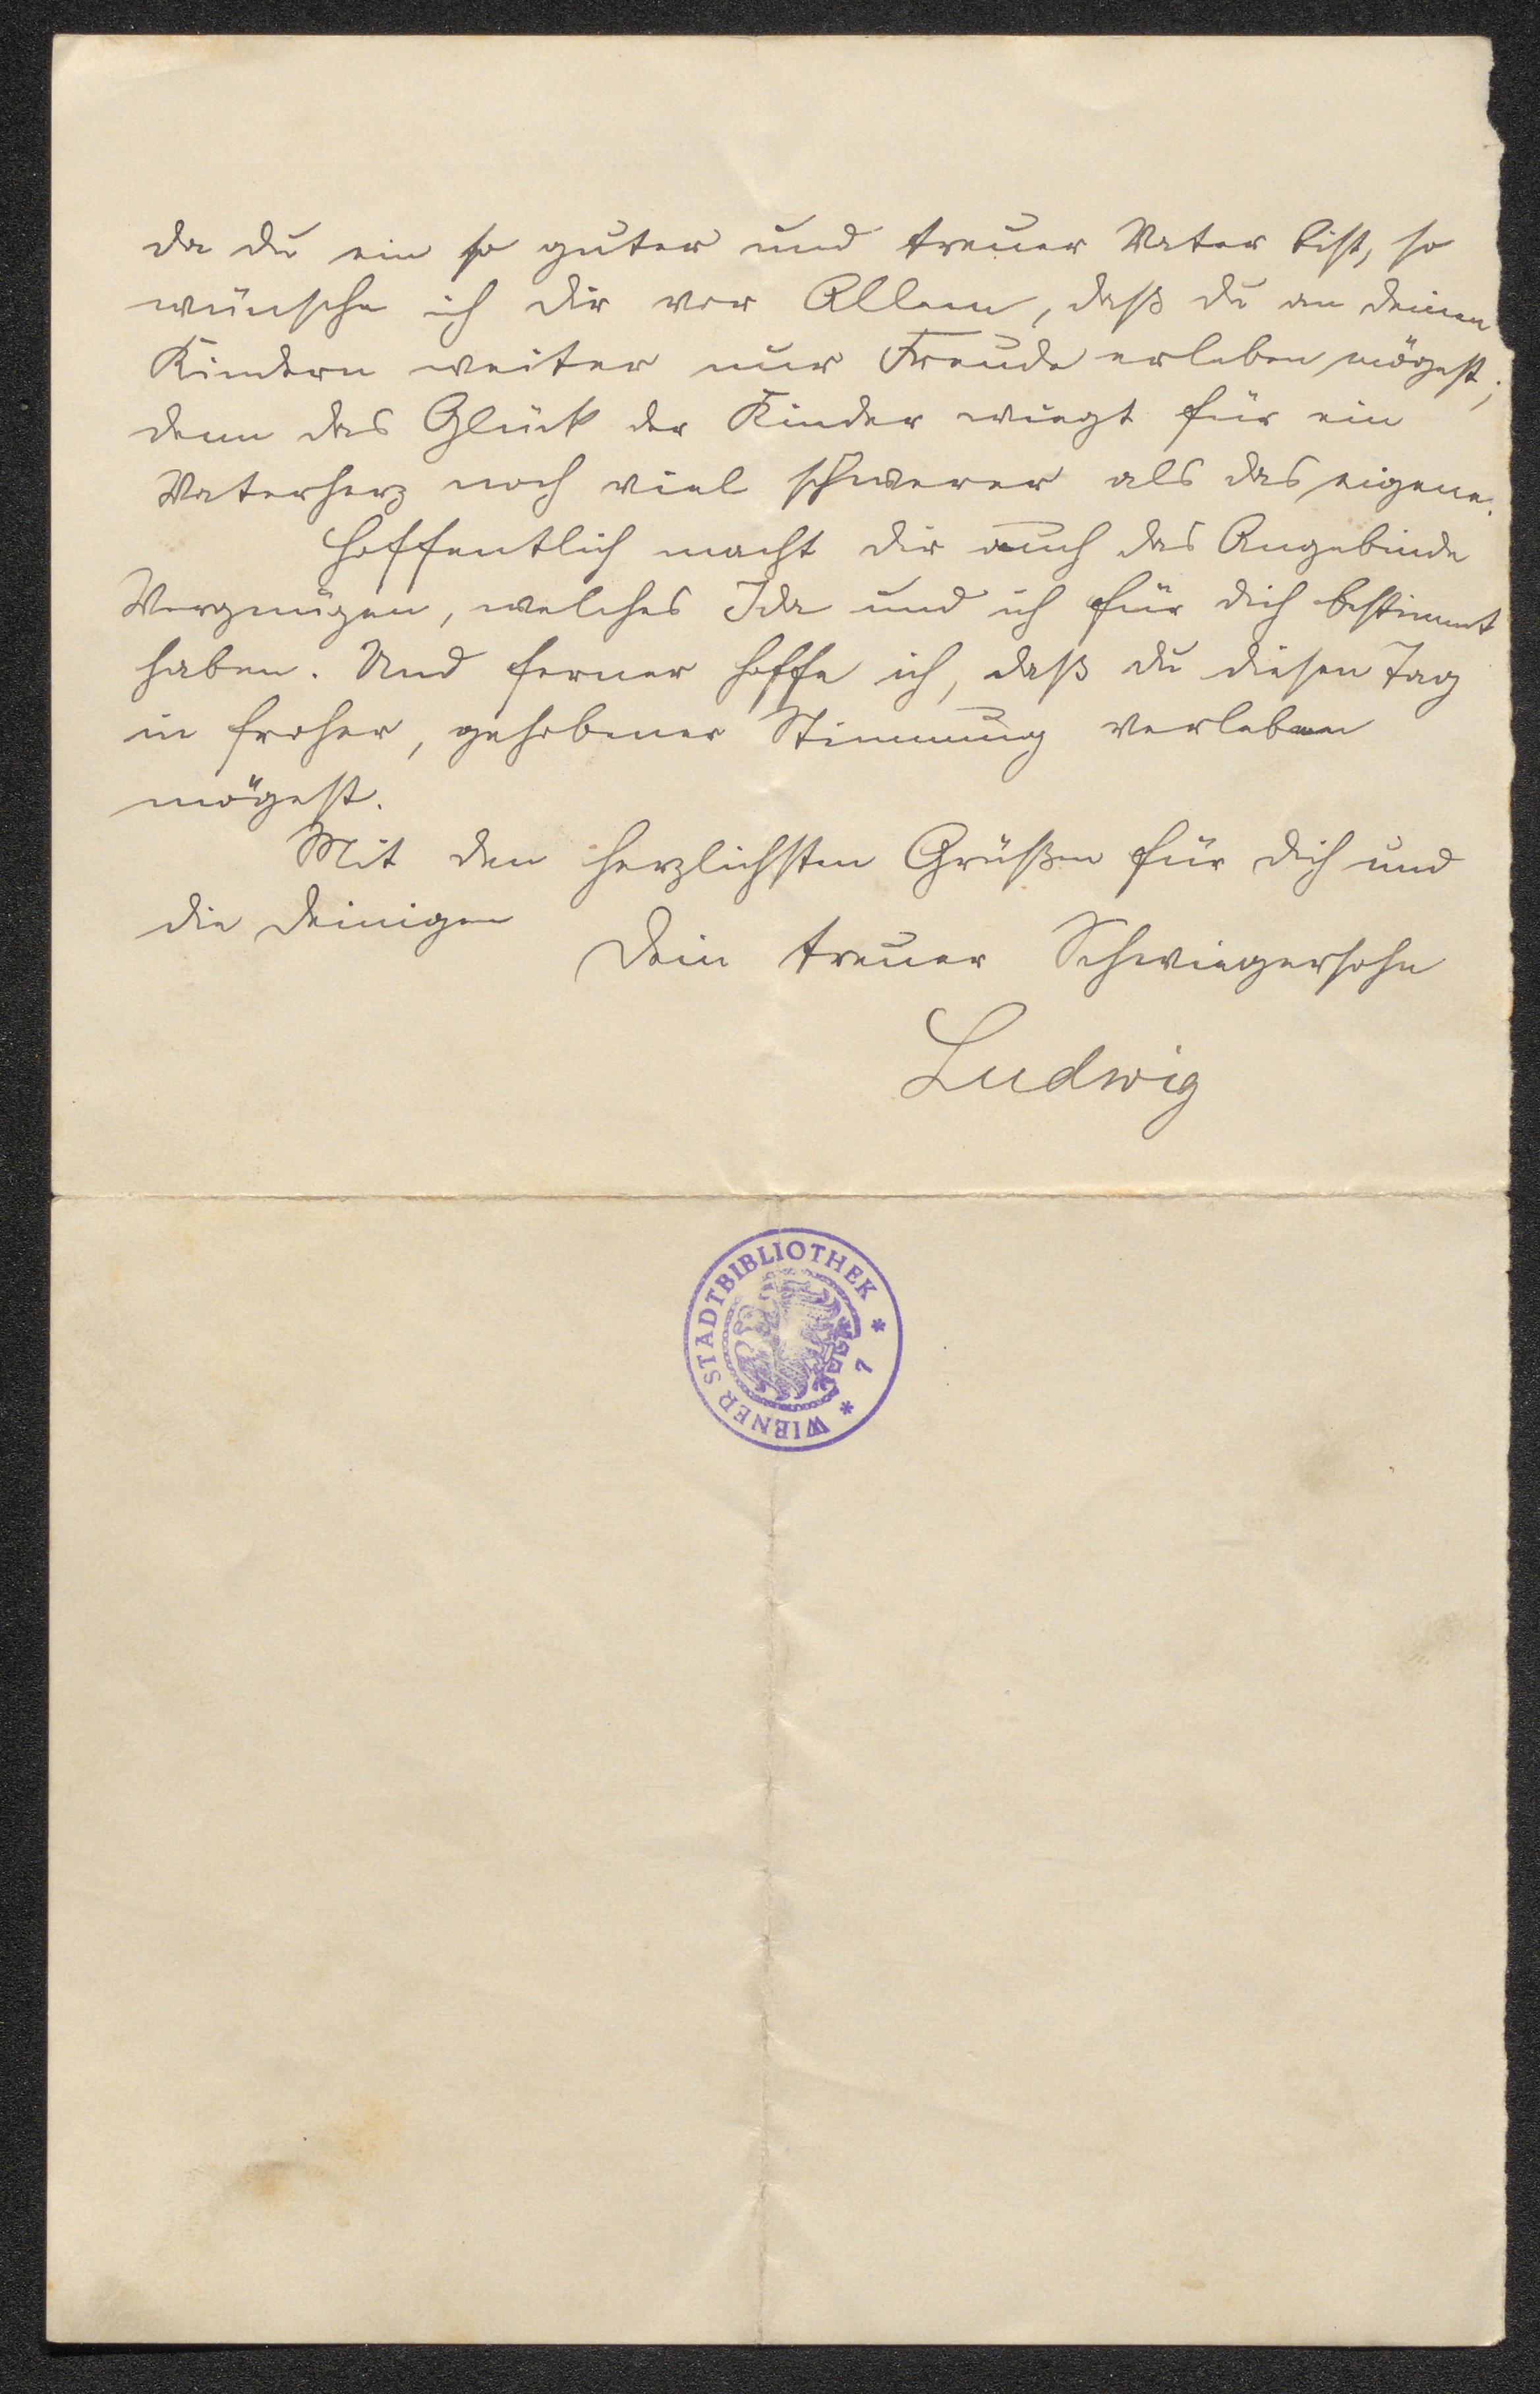 da du ein so guter und treuer Vater bist, so
wünsche ich dir vor Allem, daß du an deinen
Kindern weiter nur Freude erleben mögest;
denn das Glück der Kinder wiegt für ein
Vaterherz noch viel schwerer als das eigene.
Hoffentlich macht dir auch das Angebinde
Vergnügen, welches Ida und ich für dich bestimmt
haben. Und ferner hoffe ich, daß du diesen Tag
in froher, gehobener Stimmung verleben
mögest.
Mit den herzlichsten Grüßen für dich und
die deinigen
Dein treuer Schwiegersohn
Ludwig
WIENER STADTBIBLIOTHEK * 7 *